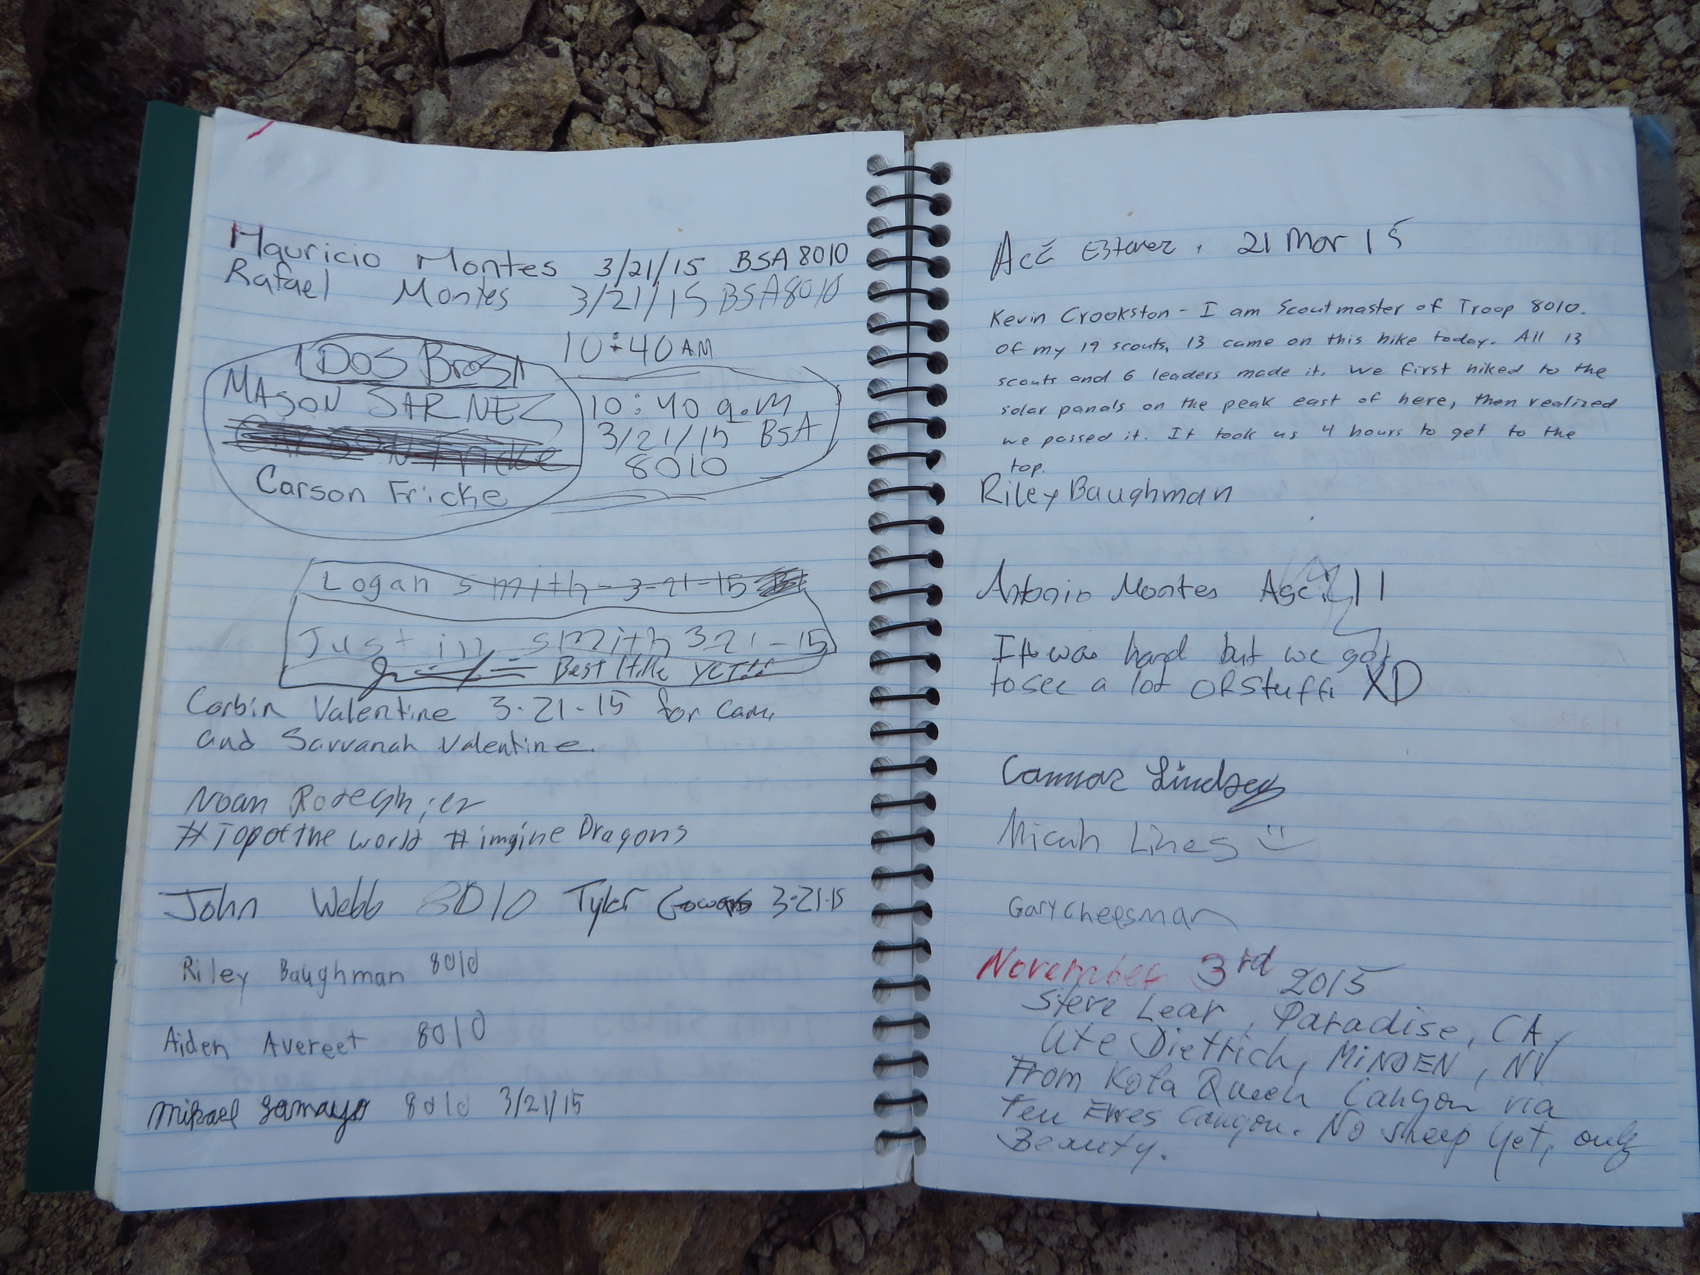 Mauricio Montes 3/21/15 BSA 8010
Rafael Montes 3/21/15 BSA 8010
10:40 AM
DOS Bros
MASON SARNEZ
Carson Fricke
10:40 a.m
3/21/15 BSA
8010
Logan smith-3-21-15
Justin smith 321-15
Best YET!!
Corbin Valentine 3-21-15 for cam,
and Savvanah Valentine.
Noan
#Topofthe world #imgine Dragons
John Webb 8010 Tyler 3-21-15
Riley Baughman 8010
Aiden Avereet 8010
Mikael Samayo 8010 3/21/15
21 Mar 15
Kevin Crookston - I am Scoutmaster of Troop 8010.
Of my 19 scouts, 13 came on this hike today. All 13
scouts and 6 leaders made it. We first hiked to the
solar panals on the peak east of here, then realized
we passed it. It took us 4 hours to get to the
top.
Riley Baughman
Antonio Montes Age: 11
It was hard but we got
to see a lot OF stuff XD
Connor Lindsey
Micah Lines
Gary Cheesman
November 3rd 2015
Steve Lear, Paradise, CA,
Ute Dietrich, MINDEN, NV
From Kofa Queen Canyon via
Ten Ewes Canyon. No sheep yet, only
Beauty.